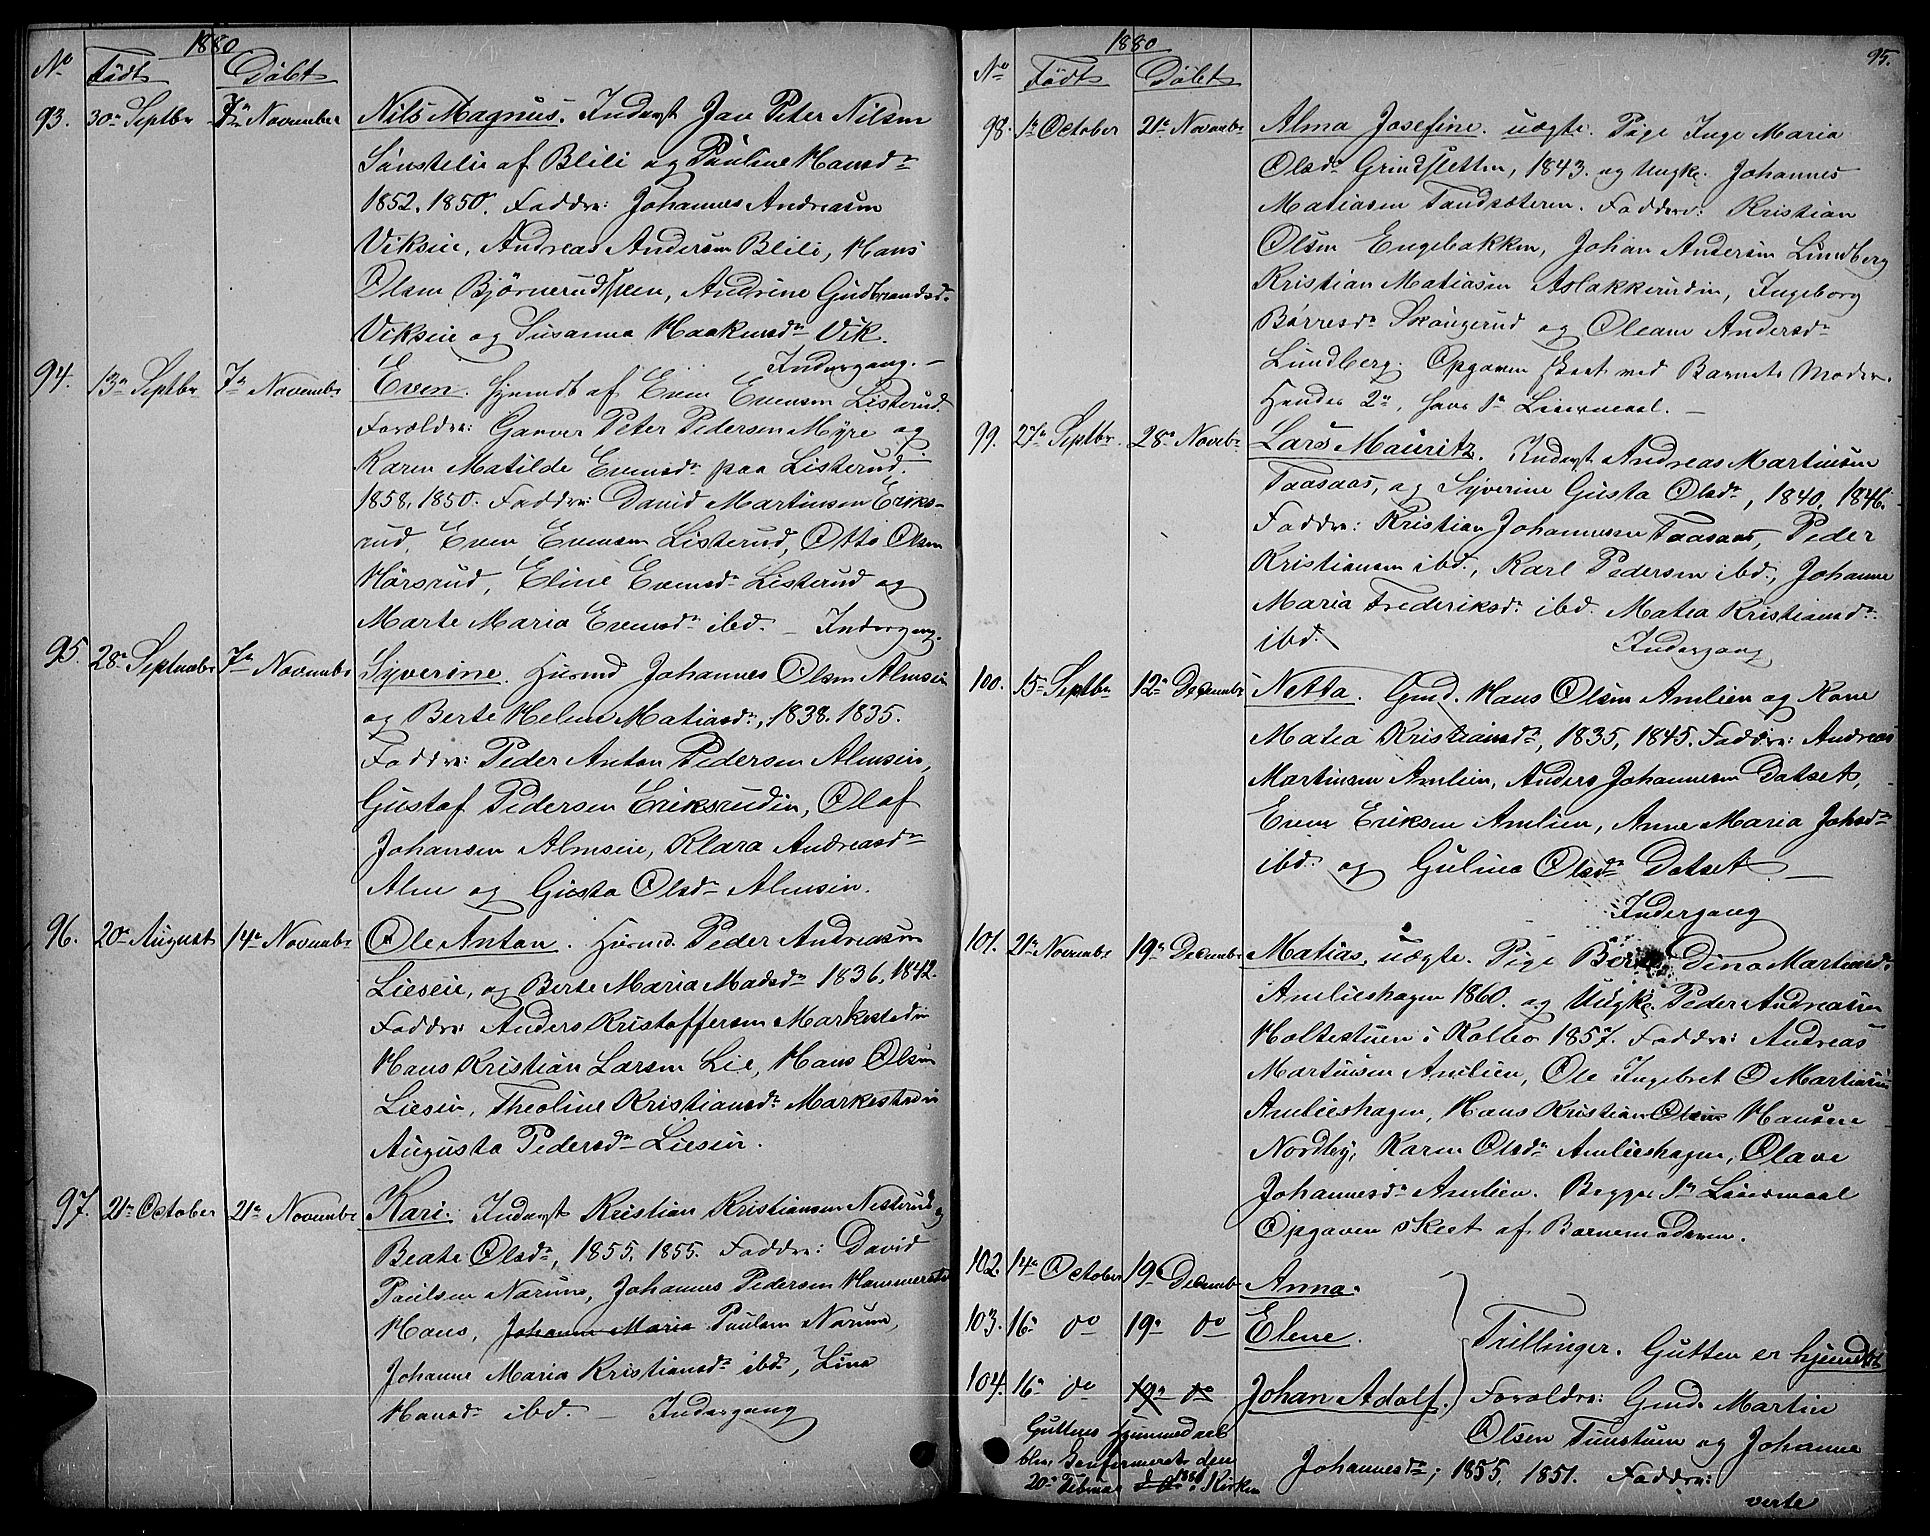 1880
No Födt Döbt
93. 30te Septbr 7de November Nils Magnus. Inderst Jan Peter Nilsen
Sönstelie af Blili og Pauline Hansdr
1852. 1850. Faddre: Johannes Andreasen
Vikseie, Andreas Andersen Blili, Hans
Olsen Björnerud, Andrine Gudbrandsd.
Viksein og Susanna Haakensdr Vik.
Indergang. —
94. 13de Septbr 7de Novembr Even. Hjemdt af Even Evensen Listerud.
Forældre: Garver Peter Pedersen Myre og
Karen Matilde Evensdr paa Listerud.
1858. 1850. Faddre: David Martinsen Eriks-
rud, Even Evensen Listerud, Otto Olsen
Hörsrud, Eline Evensdr Listerud og
Marte Maria Evensdr ibd. — Indergang.
95. 28de Septembr 7de Novembr Syverine. Husmd Johannes Olsen Almseie
og Berte Helene Matiasdr, 1838. 1835.
Faddre: Peder Anton Pedersen Almseie,
Gustaf Pedersen Eriksrudeie, Olaf
Johansen Almseie, Klara Andreasdr
Alm og Gusta Olsdr Almseie.
96. 20de August 14de Novembr Ole Anton. Husmd. Peder Andreasen
Lieseie, og Berte Maria Madsdr 1836. 1842.
Faddre Anders Kristoffersen Markestadeie
Hans Kristian Larsen Lie, Hans Olsen
Lieseie, Theoline Kristiansdr Markestadeie
Augusta Pedersdr Lieseie.
97. 21de October 21de Novembr Kari. Inderst Kristian Kristiansen Nesterud og
Beate Olsdr, 1855. 1855. Faddre: David
Paulsen Narum, Johannes Pedersen Hammerstad
Hans, Johanne Maria Paulsen Narum,
Johanne Maria Kristiansdr ibd., Lina
Hansdr ibd. — Indergang
1880 95.
No Födt Döbt
98. 1te October 21de Novembr Alma Josefine. uægte. Pige Inge Maria
Olsdr Grindsletten, 1843. og Ungk. Johannes
Matiasen Tandsæteren. Faddre: Kristian
Olsen Engebakken, Johan Andersen Lundberg
Kristian Matiasen Aslakkerudin, Ingeborg
Börresdr Skaugerud og Oleane Andersdr
Lundberg. Opgaven skeet ved Barnets Moder.
Hendes 2de, hans 1te Leiermaal. —
99. 27de Septbr. 28de Novebr Lars Mauritz. Inderst Andreas Martinsen
Taasaas, og Syverine Gusta Olsdr, 1840, 1846.
Faddre: Kristian Johannesen Taasaas, Peder
Kristiansen ibd., Karl Pedersen ibd., Johanne
Maria Frederiksdr ibd. Matea Kristiansdr
ibd. Indergang
100. 15de Septbr 12de Decembr Netta. Gmd. Hans Olsen Amlien og Kone
Matea Kristiansdr, 1835, 1845. Faddre: Andreas
Martinsen Amlien, Anders Johannesen Dotset,
Even Eriksen Amlien, Anne Maria Johsdr
ibd. og Gulina Olsdr Dotset —
Indergang
101. 21de Novembr 19de Decembr Matias. uægte. Pige Dina Martinsdr
Amlieshagen 1860. og Ungk. Peder Andreasen
Holtestuen i Kolbo 1857. Faddre: Andreas
Martinsen Amlien, Ole Ingebret O Martinsen
Amlieshagen, Hans Kristian Olsen Hansen
Nordby, Karen Olsdr Amlieshagen, Olave
Johannesdr Amlien. Begges 1te Leiermaal
Opgaven skeet af Barnemoderen.
102. 14de October 19de Decembr Anna.
103. 16de do 19de do Elene. Trillinger. Gutten er hjemdöbt
104. 16de do 19de do Johan Adolf. Forældre: Gmd. Martin
Guttens Hjemmedaab Olsen Tunstuen og Johanne
blev Confirmeret den Johannesdr; 1855, 1851. Faddre:
20de Februar 1881 i Kirken verte